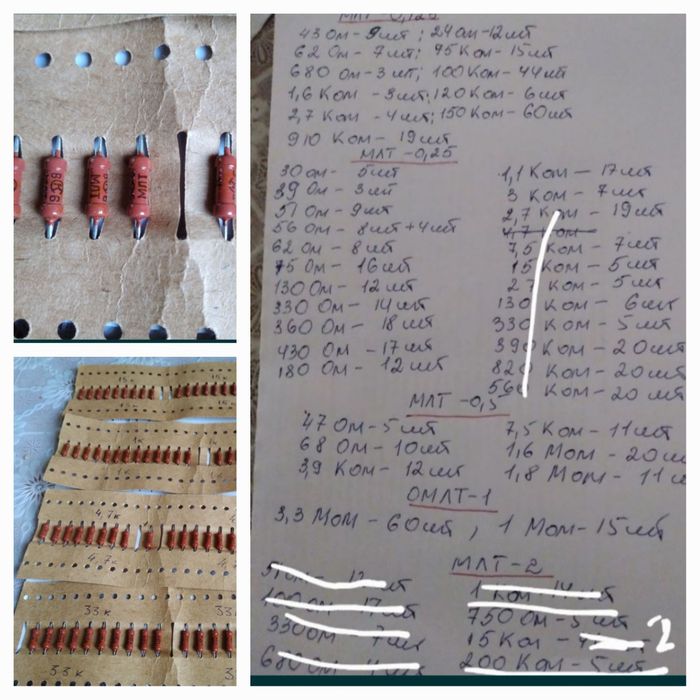 9.1 08
МЛТ
МЛТ
15к
1к
1к
1к
4,7к
4,7к
33к
33к
33к
МЛТ-0,125
43 Ом - 9 шт ; 24 Ом - 12 шт
62 Ом - 7 шт; 75 Ком - 15 шт
680 Ом - 3 шт; 100 Ком - 44 шт
1,6 Ком - 3 шт; 120 Ком - 6 шт
2,7 Ком - 4 шт; 150 Ком - 60 шт
910 Ком - 19 шт
МЛТ-0,25
30 Ом - 5 шт
39 Ом - 3 шт
51 Ом - 9 шт
56 Ом - 8 шт + 4 шт
62 Ом - 8 шт
75 Ом - 16 шт
130 Ом - 12 шт
330 Ом - 14 шт
360 Ом - 18 шт
430 Ом - 17 шт
180 Ом - 12 шт
1,1 Ком - 17 шт
3 Ком - 7 шт
2,7 Ком - 19 шт
4,7 Ком
7,5 Ком - 7 шт
15 Ком - 5 шт
27 Ком - 5 шт
130 Ком - 6 шт
330 Ком - 5 шт
390 Ком - 20 шт
820 Ком - 20 шт
560 Ком - 20 шт
МЛТ-0,5
47 Ом - 5 шт
68 Ом - 10 шт
3,9 Ком - 12 шт
7,5 Ком - 11 шт
1,6 Мом - 20 шт
1,8 Мом - 11 ш
ОМЛТ-1
3,3 Мом - 60 шт , 1 Мом - 15 шт
МЛТ-2
330 Ом 7 шт
1 Ком 14 шт
750 Ом - 3 шт
15 Ком - 2
200 Ком - 5 шт